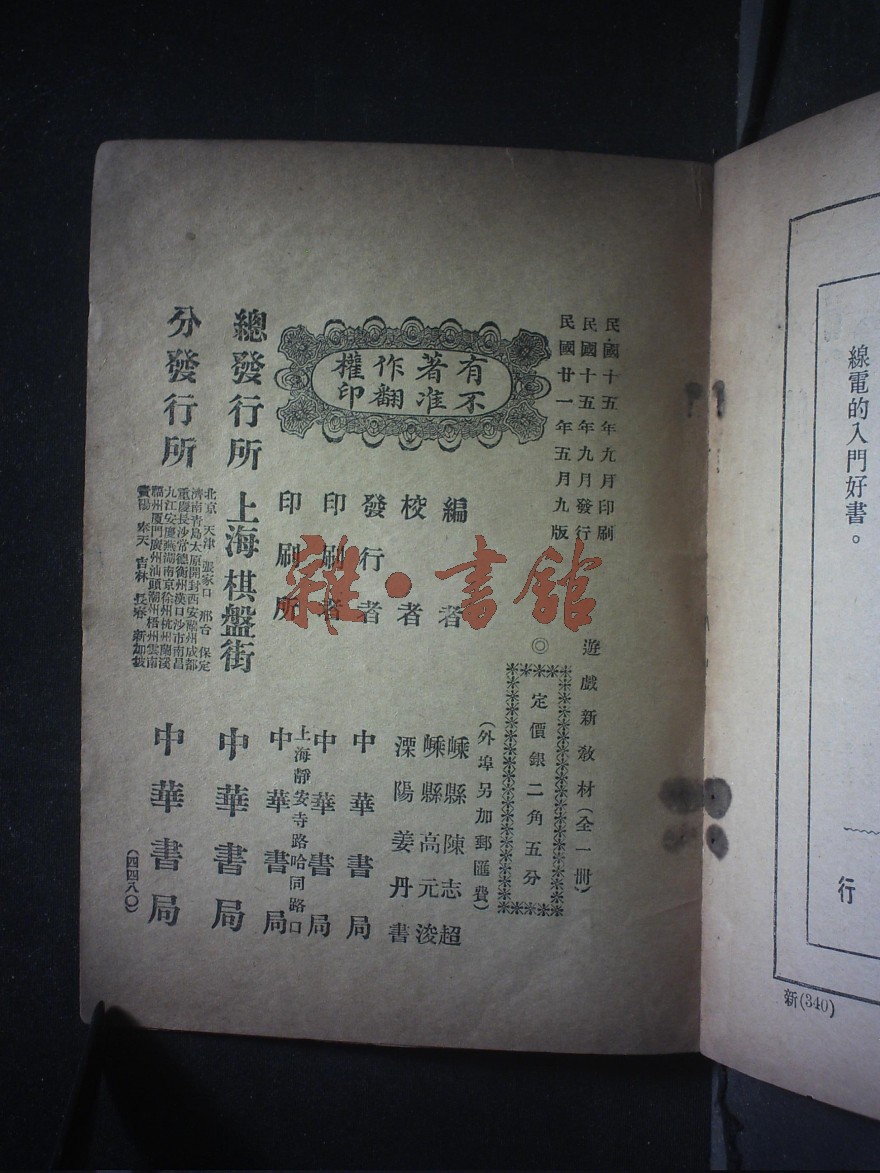 線電的入門好書。
行
新(340)
民國十五年九月印刷
民國十五年九月發行
民國廿一年五月九版
遊戲新教材(全一冊)
◎
定價銀二角五分
(外埠另加郵匯費)
有著作權
不准翻印
編者
嵊縣陳志超
嵊縣高元浚
校者
溧陽姜丹書
發行者
中華書局
印刷者
中華書局
印刷所
上海靜安寺路哈同路口
中華書局
總發行所
上海棋盤街
中華書局
分發行所
北京 天津 張家口 邢台 保定
濟南青島太原開封西安蘭州成都
重慶長沙常德衡州漢口沙市南昌
九江安慶蕪湖南京徐州杭州蘭溪
福州厦門廣州汕頭潮州梧州雲南
貴陽 奉天 吉林 長春 新加坡
中華書局
(四四八〇)
雜·書館